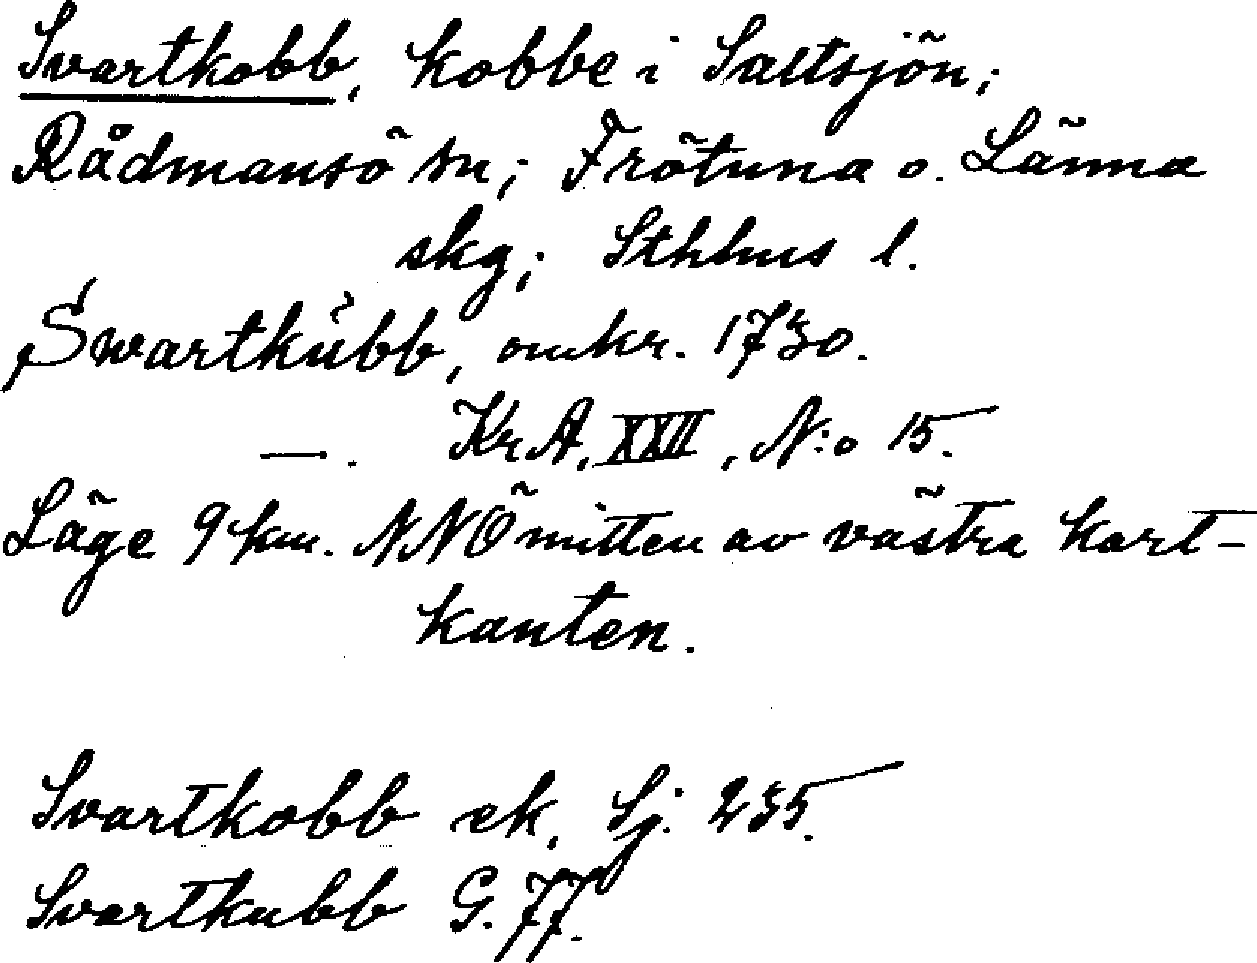 Svartkobb, kobbe i Saltsjön;
Rådmansö sn; Frötuna o. Länna
skg; Sthlms l.
Swartkŭbb, omkr. 1730.
—. KrA, XXII, N:o 15.
Läge 9 km. NNÖ mitten av västra kart-
kanten.
Svartkobb ek. Sj. 235.
Svartkubb G. 77.